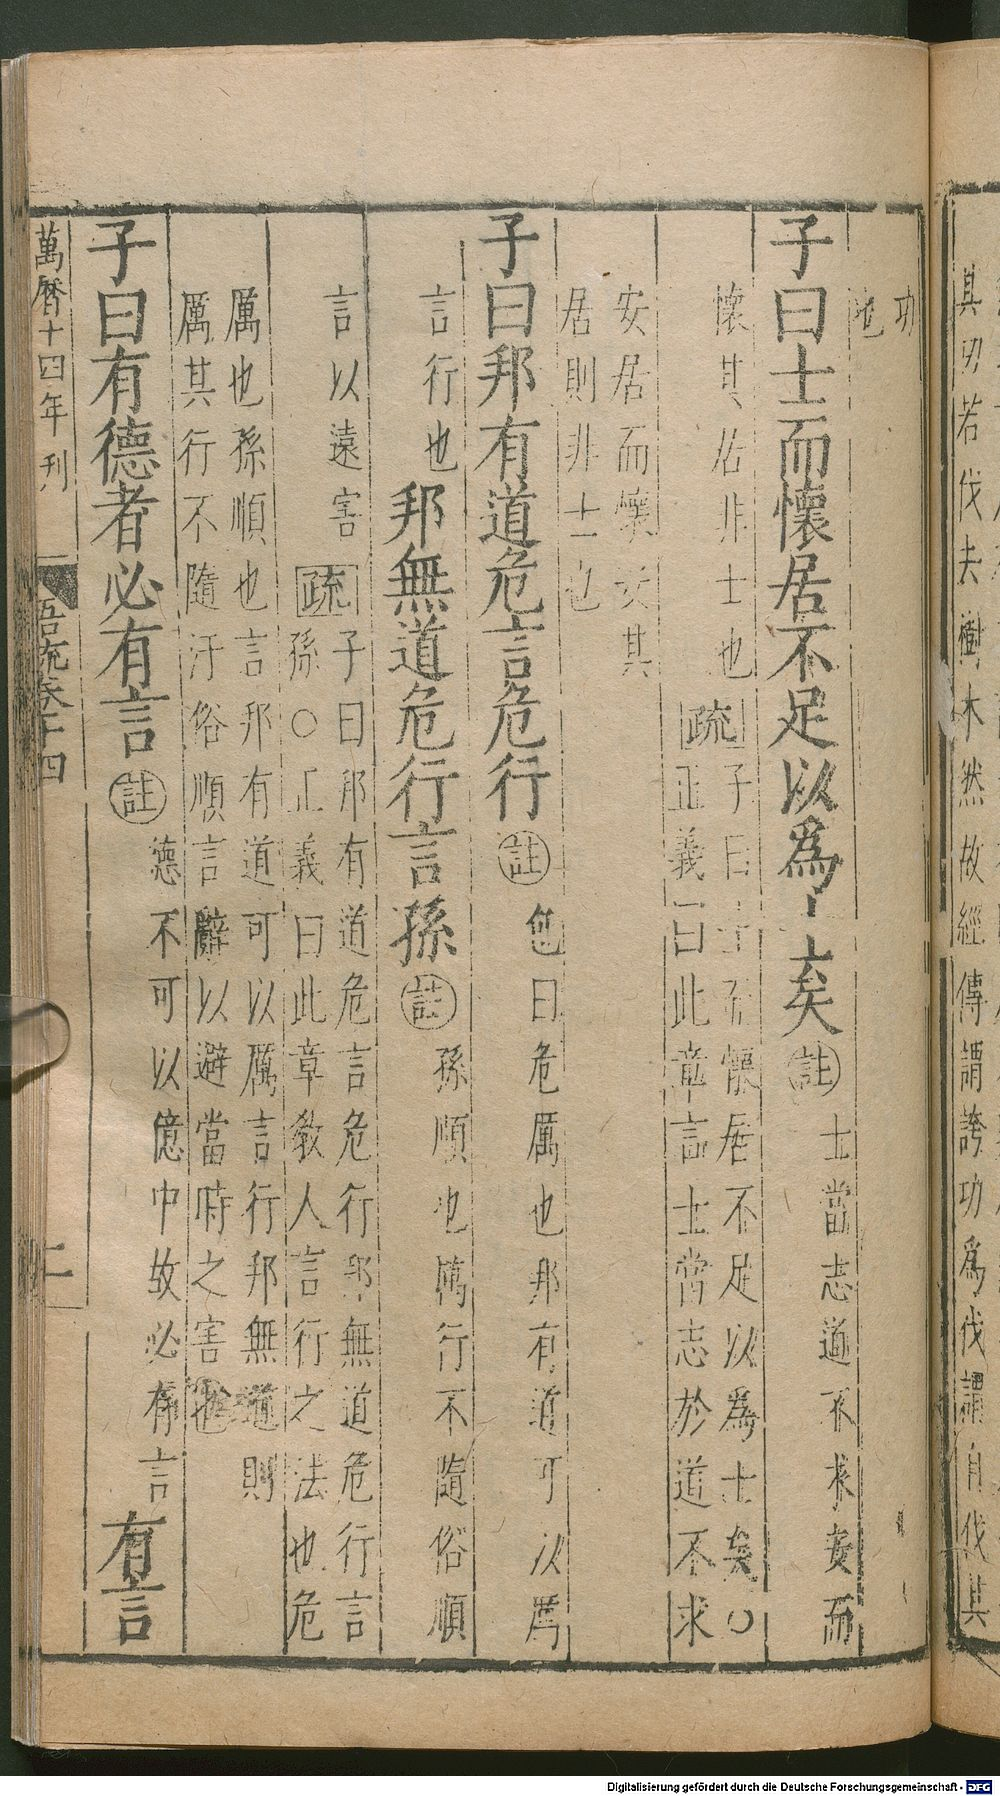 其功若伐去樹木然故經傳謂誇功為伐謂自伐其
功
也
子曰士而懷居不足以為士矣 註 士當志道不求安而
懷其居非士也 疏 子曰士而懷居不足以為士矣〇
正義曰此章言士當志於道不求
安居而懷安其
居則非士也
子曰邦有道危言危行 註 包曰危厲也邦有道可以厲
言行也 邦無道危行言孫 註 孫順也厲行不隨俗順
言以遠害 疏 子曰邦有道危言危行邦無道危行言
孫〇正義曰此章教人言行之法也危
厲也孫順也言邦有道可以厲言行邦無道則
厲其行不隨汙俗順言辭以避當時之害也
子曰有德者必有言 註 德不可以億中故必有言 有言
萬曆十四年刊
吾充卷十四
二
Digitalisierung gefördert durch die Deutsche Forschungsgemeinschaft - DFG